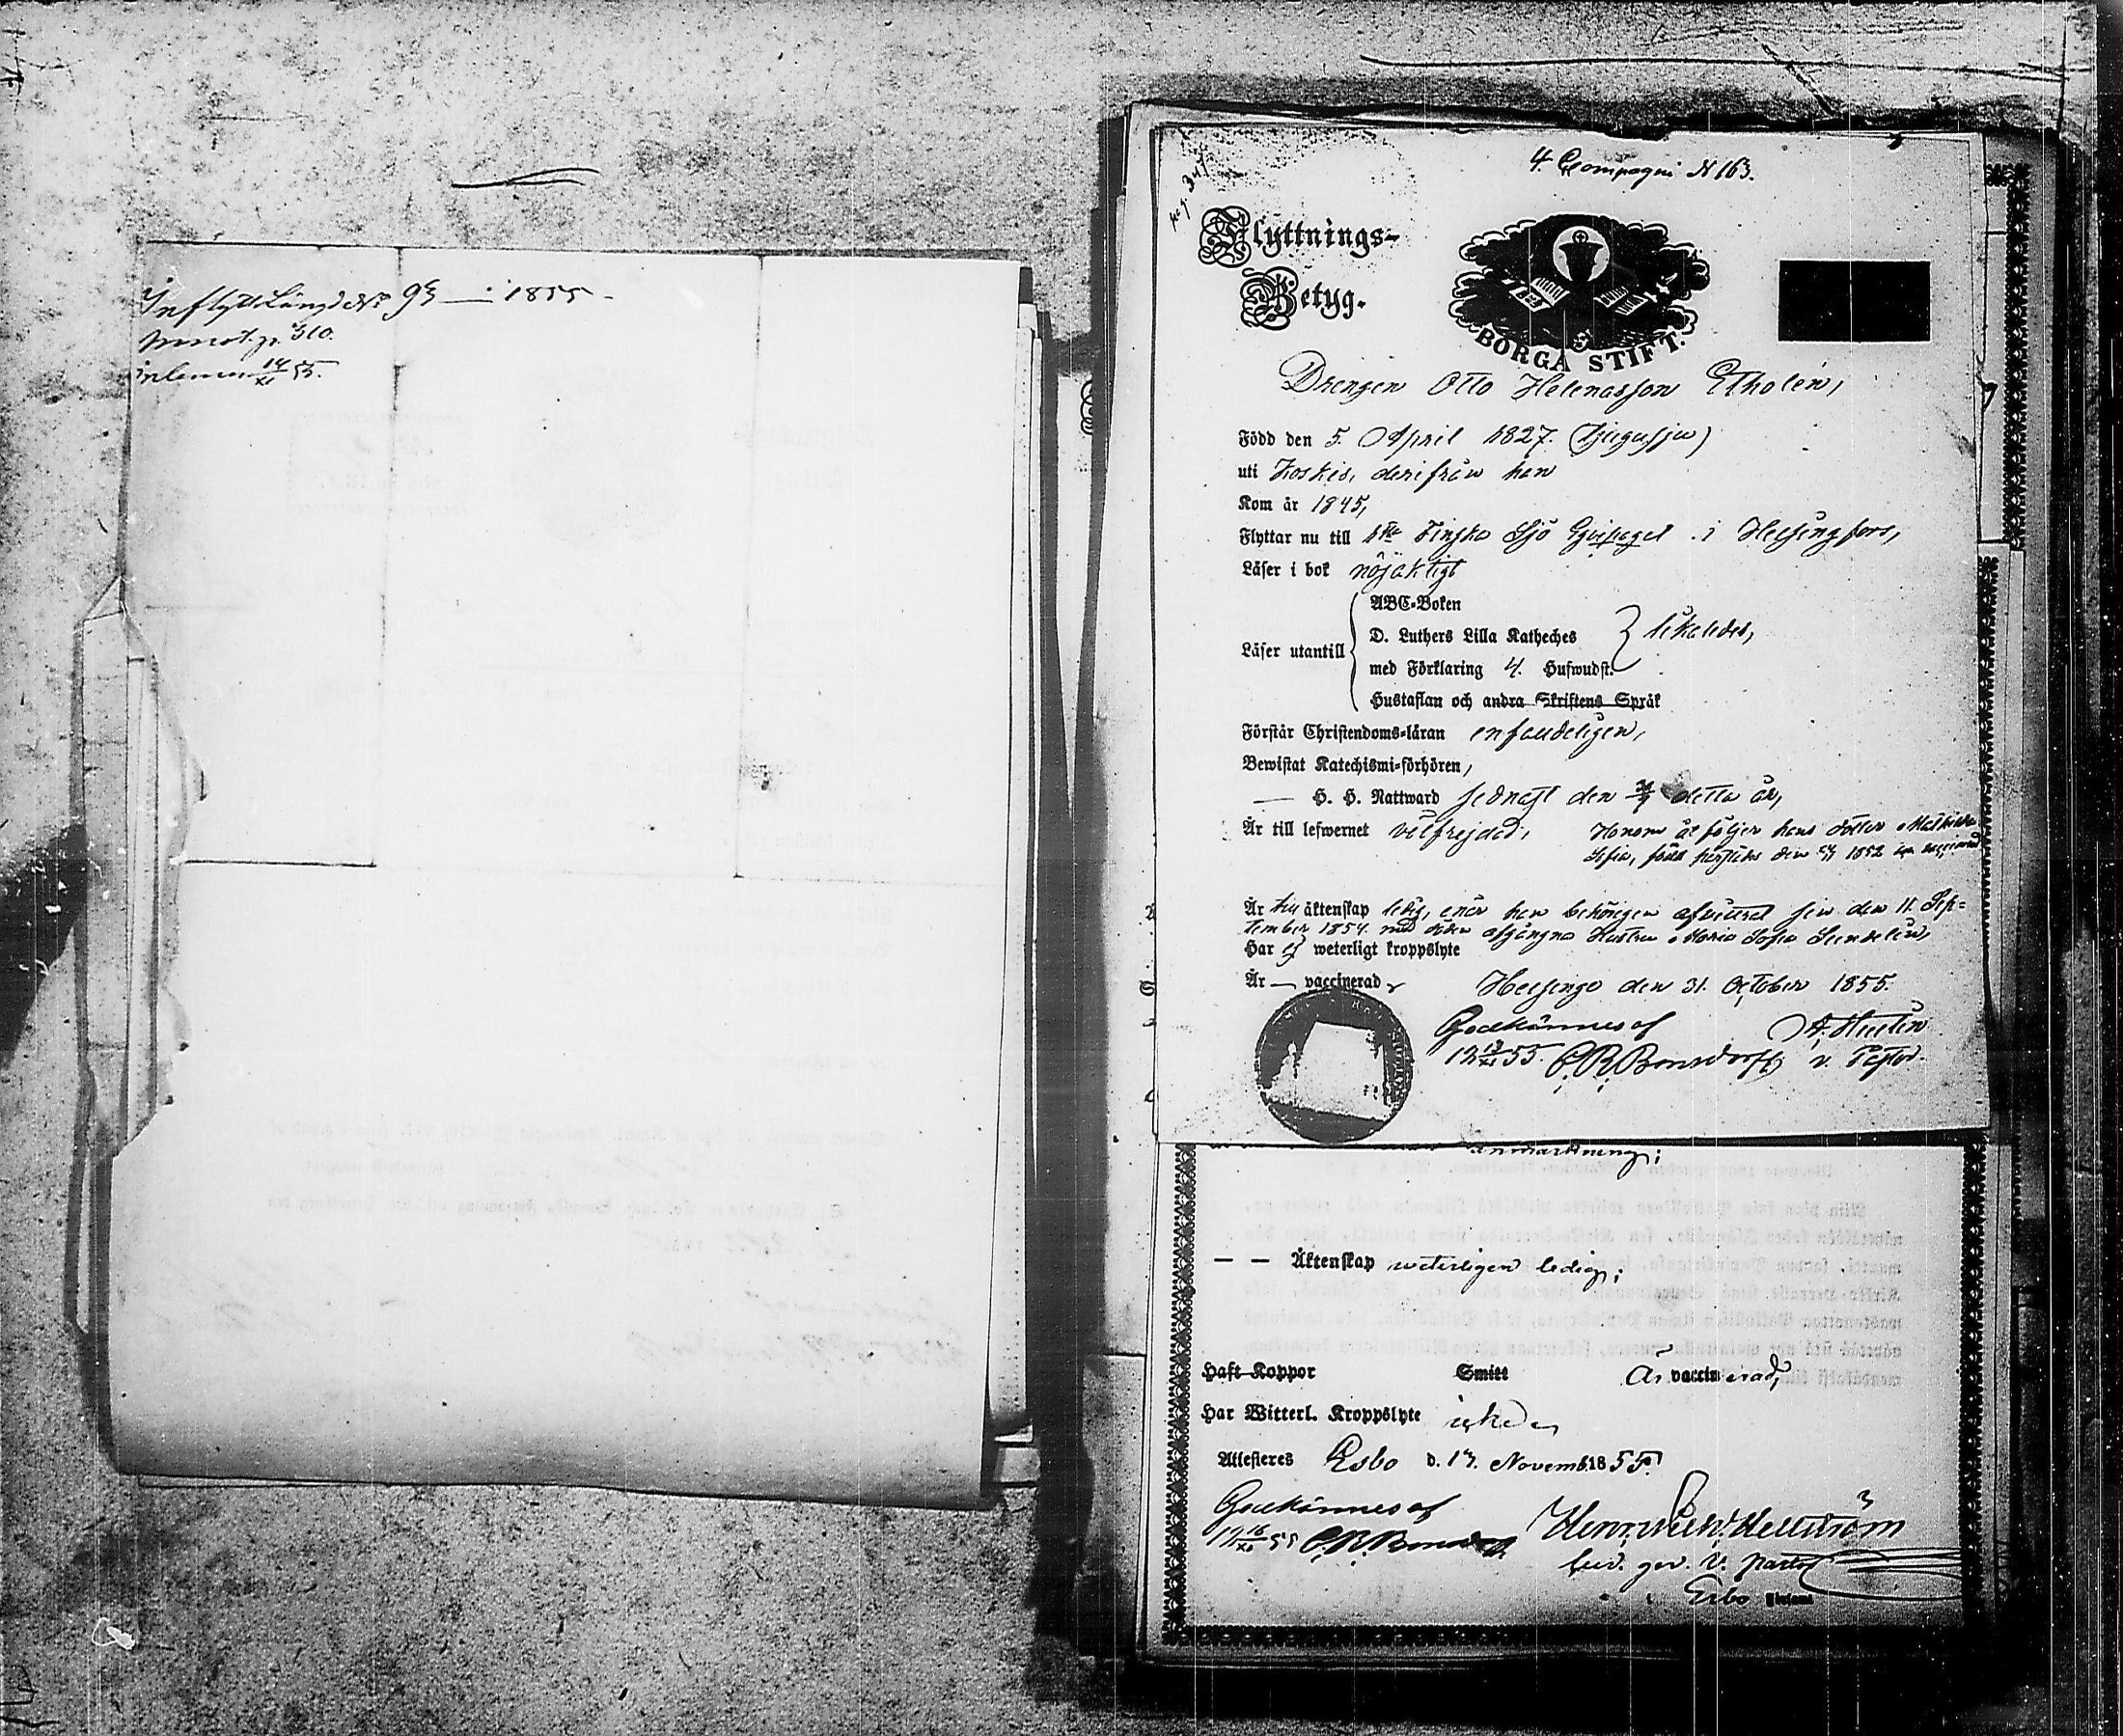 InflyttLängd N:o 93 — 1855 -
annot. p. 310.
inlemn 14/XI 55.
pag. 341
4. Compagni N 163.
Flyttnings-
Betyg.
BORGA STIFT.
Drengen Otto Helenasson Etholén,
Född den 5. April 1827. (tjugusju)
uti Koskis, derifrån han
Kom år 1845,
Flyttar nu till 1sta Finska Sjö Equipaget i Helsingfors,
Läser i bok nöjaktigt
Läser utantill
ABC-Boken
D. Luthers Lilla Katheches
med Förklaring 4. Hufwudst.
likaledes,
Hustaflan och andra Skriftens Språk
Förstår Christendoms-läran enfaldeligen,
Bewistat Katechismi-förhören,
— H. H. Nattward sednast den detta år,
Är till lefwernet välfrejdad,
Honom åtföljer hans dotter Mathilda
Sofia, född 1852
Är till äktenskap ledig, enär han behörigen afvittrat sin den 11. Sep-
tember 1854. med döden afgångna Hustru Maria Sofia Lindelin,
Har ej weterligt kroppslyte
Är — vaccinerad
Helsinge den 31. October 1855.
Godkännes af
12 13/XI 55. C. R. Bonsdorff
v. Pastor.
Anmärkning;
— — Äktenskap weterligen ledig;
Haft Koppor Smitt Är vaccinerad,
Har Witterl. Kroppslyte icke,
Attesteres Esbo d. 13. Novemb. 1855.
Godkännes af
12 16/XI 55 C. R. Bonsdorff
Henr. Wilh. Hellström
v. pastor
i Esbo